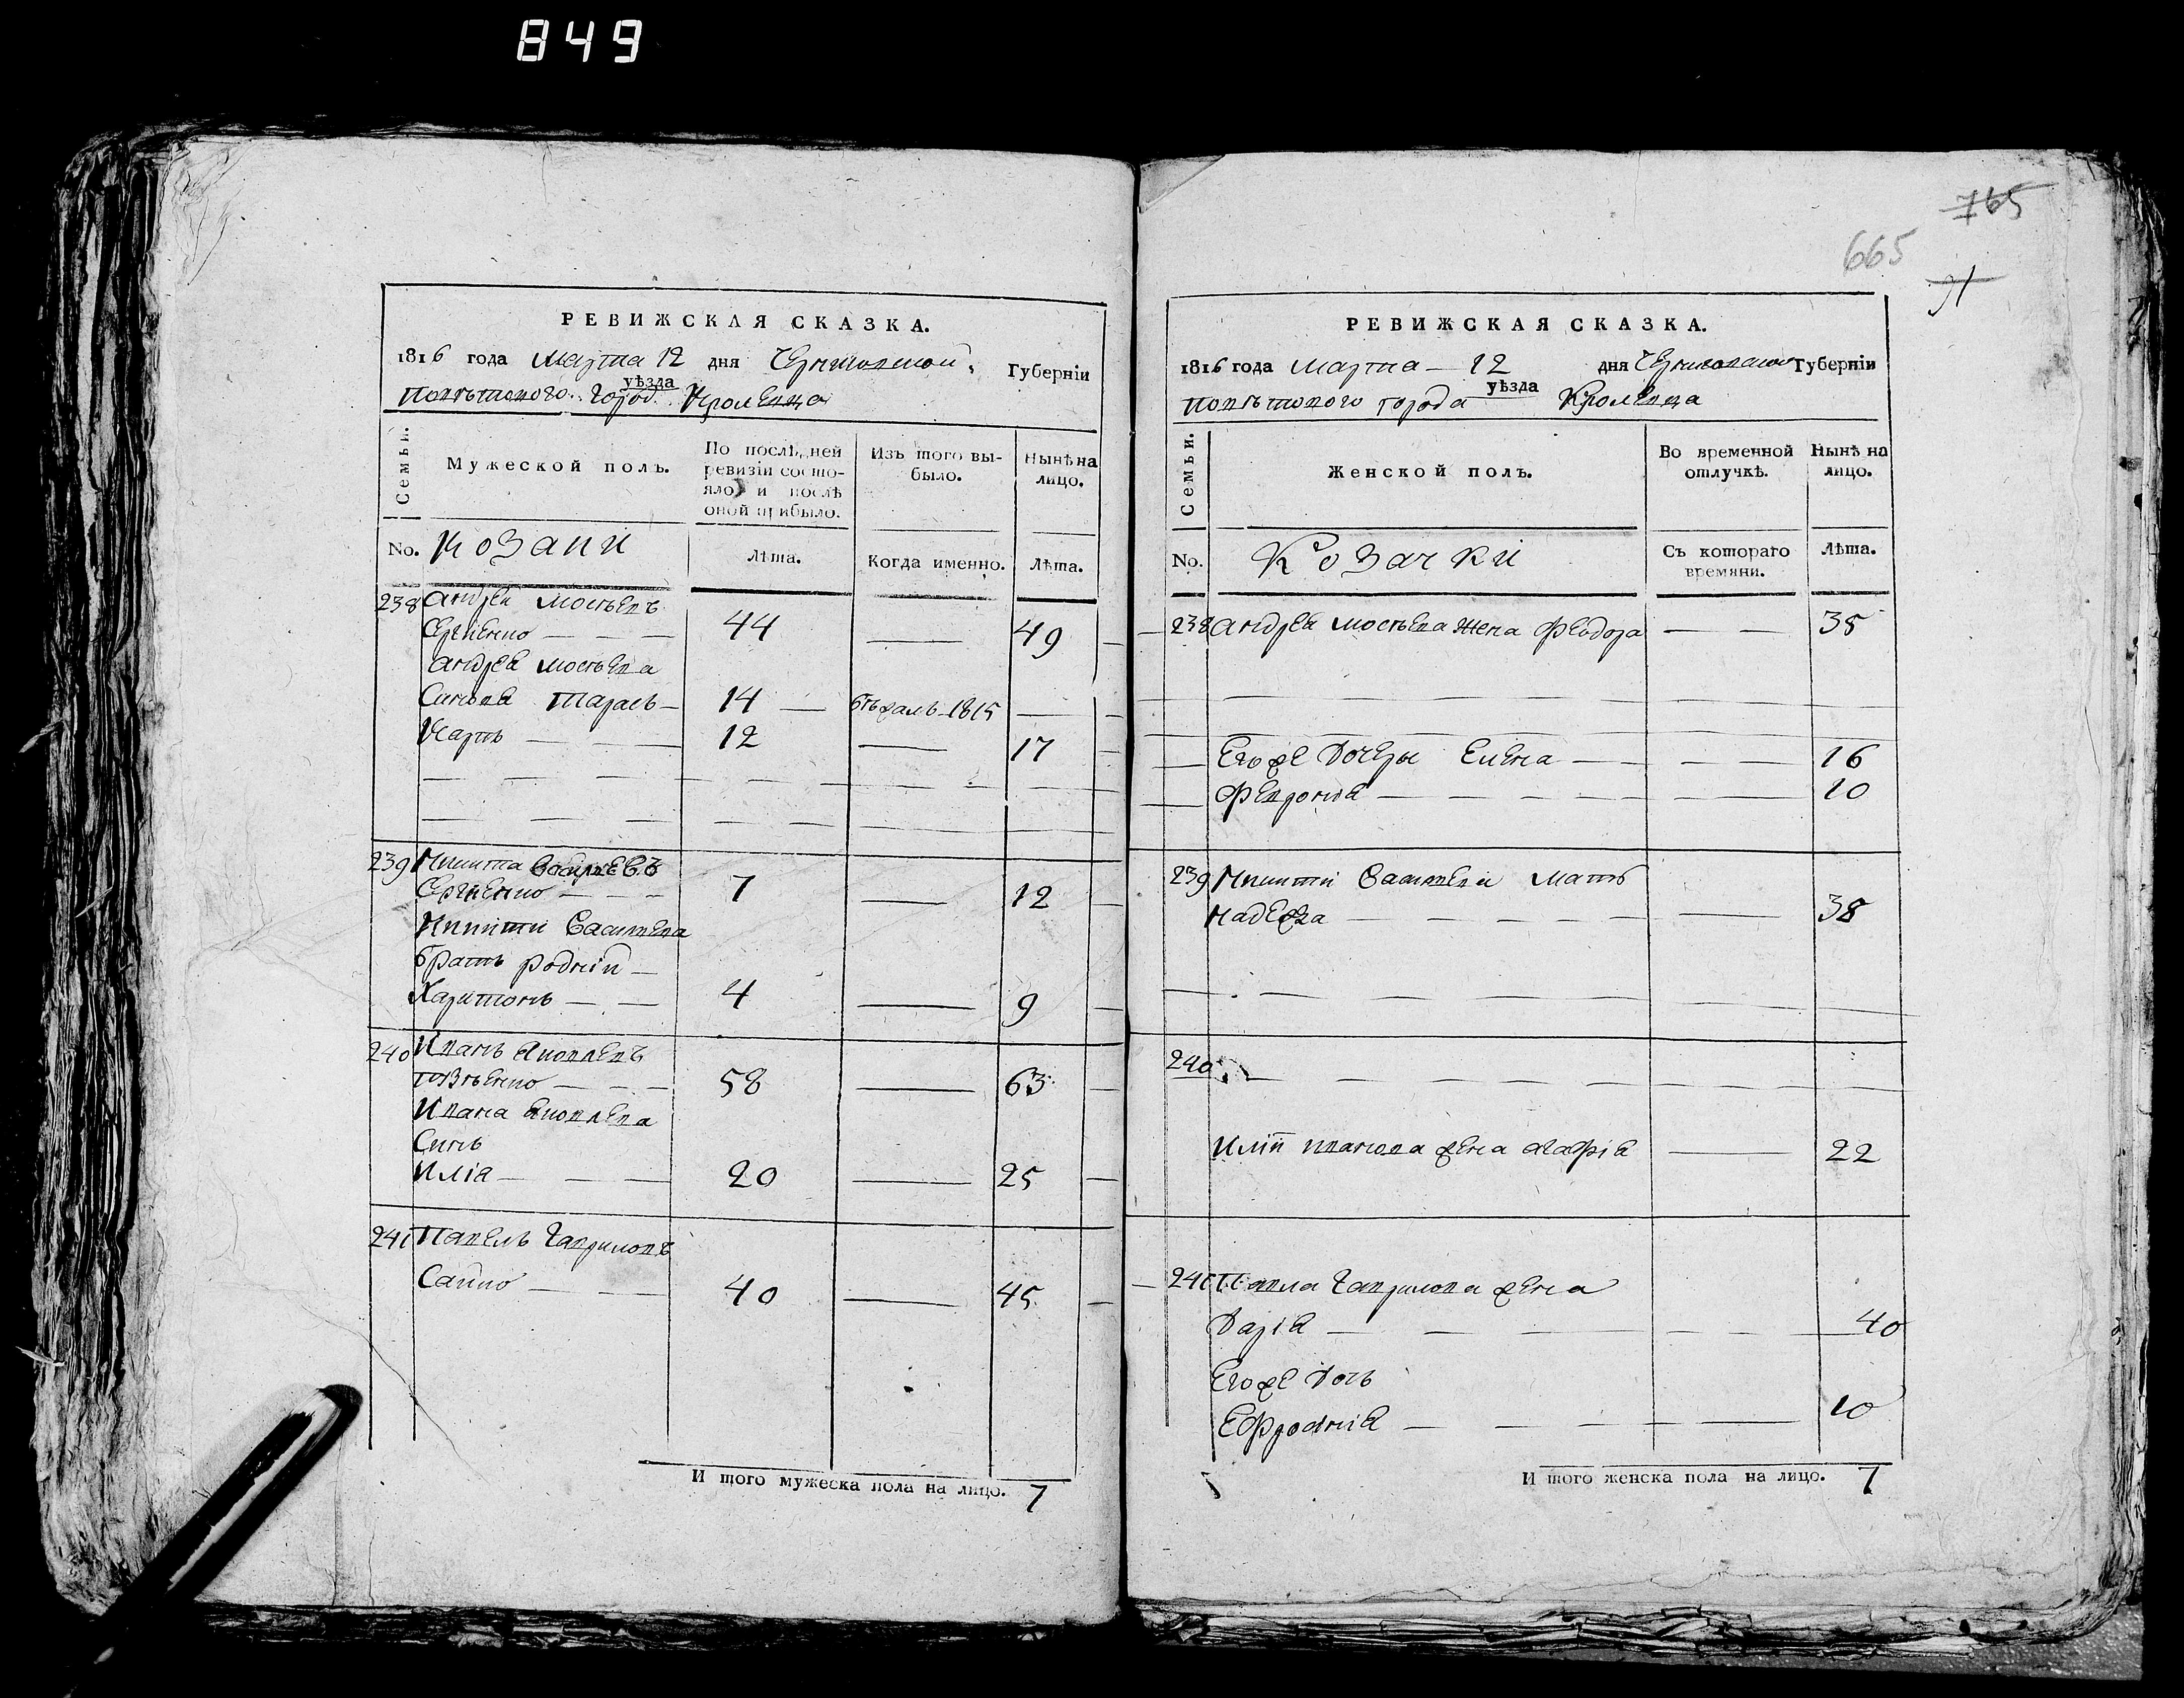 849
765
665
91
РЕВИЖСКАЯ СКАЗКА.
1816 года Марта 12 дня Черниговской Губерніи
уѣзда
Повѣтового город. Кролевца
Семьи.
Мужеской полъ.
По послѣдней ревизіи состо-
яло, и послѣ
оной прибыло.
Изъ того вы-
было.
Нынѣ на
лицо.
No. Козаки
Лѣта.
Когда именно.
Лѣта.
238 Андрей Мосѣевъ
Сергіенко — — — 44 — 49
Андрея Мосѣева
Синовя Тарасъ — 14 — бѣжалъ 1815 —
Карпъ — — 12 — 17
239 Никита Василіевъ
Сергіенко — — — 7 — 12
Никити Василіева
братъ родній —
Харитонъ — — 4 — 9
240 Иванъ Яковлевъ
— — — 58 — 63
Ивана Яковлева
Синъ
Илія — — — 20 — 25
241 Павелъ Гавриловъ
Сайко — — 40 — 45
И того мужеска пола на лицо. 7
РЕВИЖСКАЯ СКАЗКА.
1816 года Марта — 12 дня Черниговской Губерніи
уѣзда
Повѣтового города Кролевца
Семьи.
Женской полъ.
Во временной
отлучкѣ.
Нынѣ на
лицо.
No. Козачки
Съ котораго
времяни.
Лѣта.
238 Андрея Мосѣева жена Феодора — — 35
Его же дочеры Елена — — — — 16
Феврония — — — — — 10
239 Никити Василіева мать
Надежда — — — — — — 38
240
Иліи Иванова жена Агафія — 22
241 Павла Гаврилова жена
Дарія — — — — — 40
Его же дочь
Ефросинія — — — — — 10
И того женска пола на лицо. 7